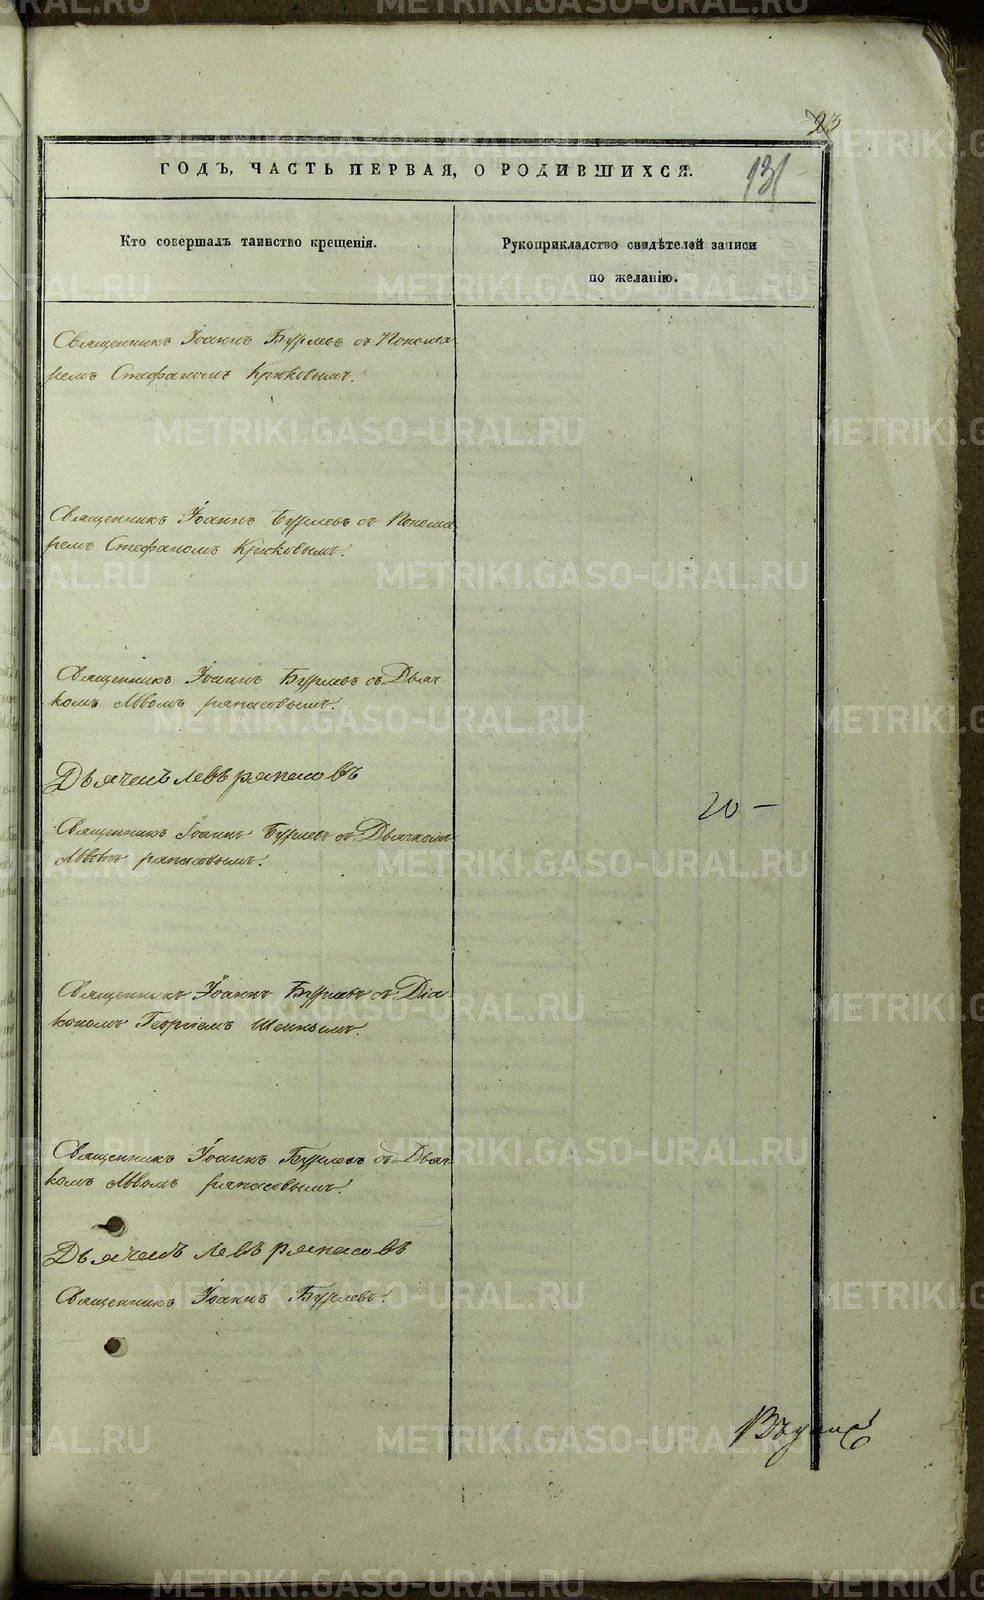 23
131
ГОДЪ, ЧАСТЬ ПЕРВАЯ, О РОДИВШИХСЯ.
Кто совершалъ таинство крещенія.
Рукоприкладство свидѣтелей записи
по желанію.
Священникъ Іоаннъ Бурлевъ съ Понома
ремъ Стефаномъ Крюковымъ.
Священникъ Іоаннъ Бурлевъ съ Понома
ремъ Стефаномъ Крюковымъ.
Священникъ Іоаннъ Бурлевъ съ Дьяч-
комъ Львомъ рапасовымъ.
Дьячекъ левъ рапасовъ
20 –
Священникъ Іоаннъ Бурлевъ съ Дьячкомъ
Львомъ рапасовымъ.
Священникъ Іоаннъ Бурлевъ съ Діа-
кономъ Георгіемъ
Священникъ Іоаннъ Бурлевъ съ Дьяч-
комъ Львомъ рапасовымъ.
Дьячекъ левъ рапасовъ
Священникъ Іоаннъ Бурлевъ.
METRIKI.GASO-URAL.RU